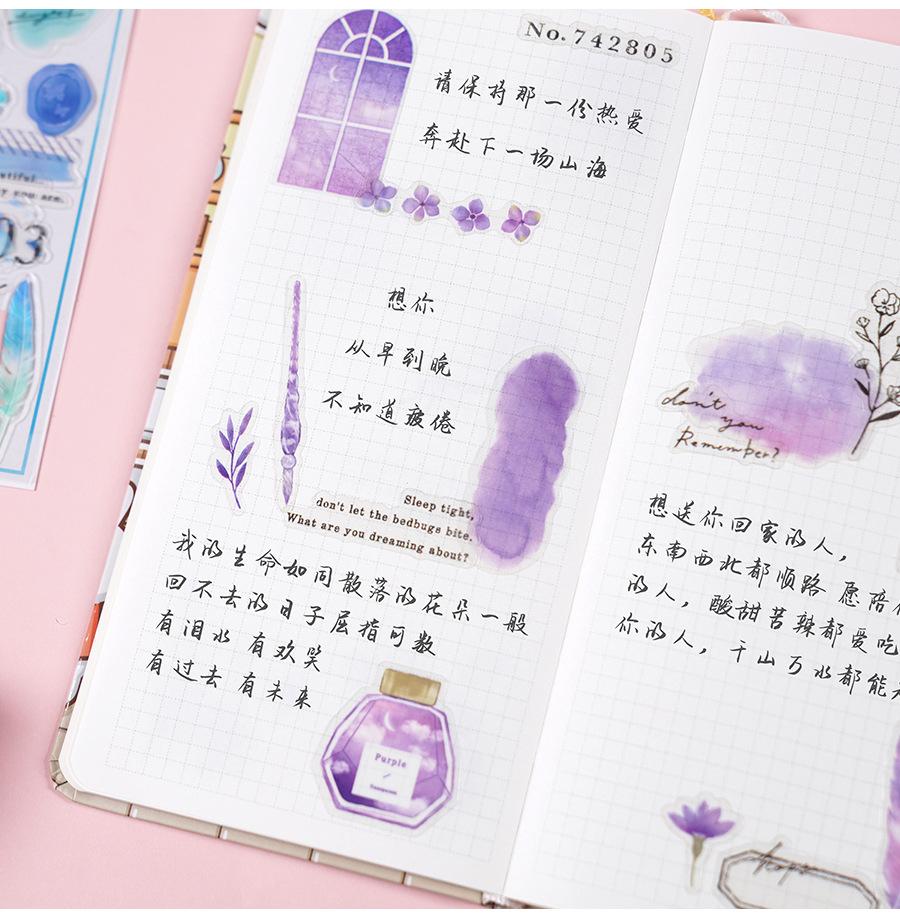 No.742805
请保持那一份热爱
奔赴下一场山海
想你
从早到晚
不知道疲倦
Sleep tight,
don't let the bedbugs bite.
What are you dreaming about?
我的生命如同散落的花朵一般
回不去的日子屈指可数
有泪水 有欢笑
有过去 有未来
Purple
don't
you
Remember?
想送你回家的人，
东南西北都顺路 愿陪
的人，酸甜苦辣都爱吃
你的人，千山万水都能
hope
you are.
03